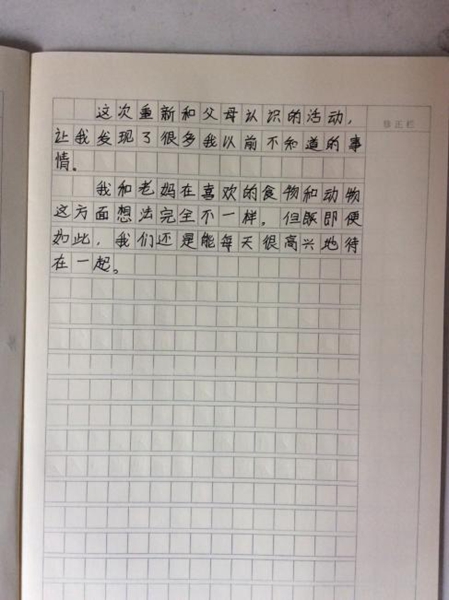 这次重新和父母认识的活动,
让我发现了很多我以前不知道的事
情。
我和老妈在喜欢的食物和动物
这方面想法完全不一样。但既即便
如此,我们还是能每天很高兴地待
在一起。
修正栏